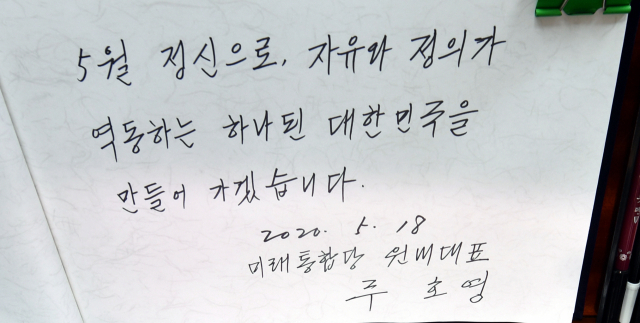 5월 정신으로, 자유와 정의가
역동하는 하나된 대한민국을
만들어 가겠습니다.
2020. 5. 18
미래통합당 원내대표
주 호 영